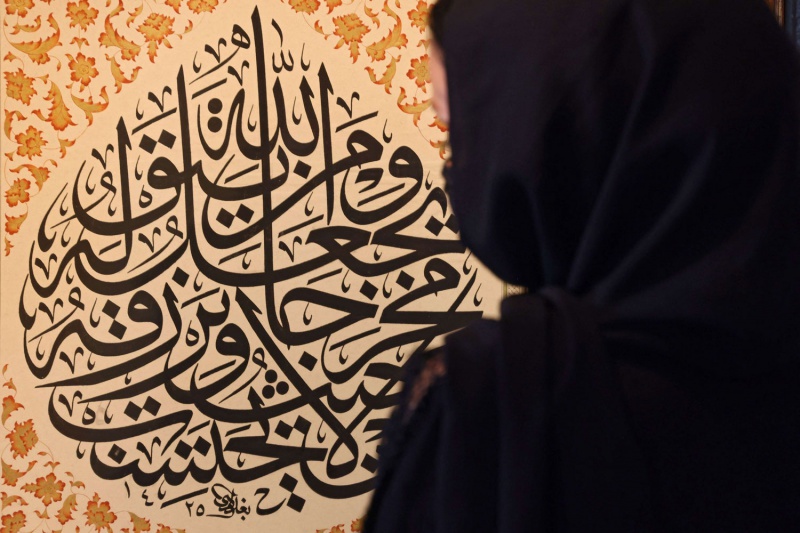 ومن يتق الله
يجعل له مخرجا
ويرزقه من حيث
لا يحتسب
١٤٢٥